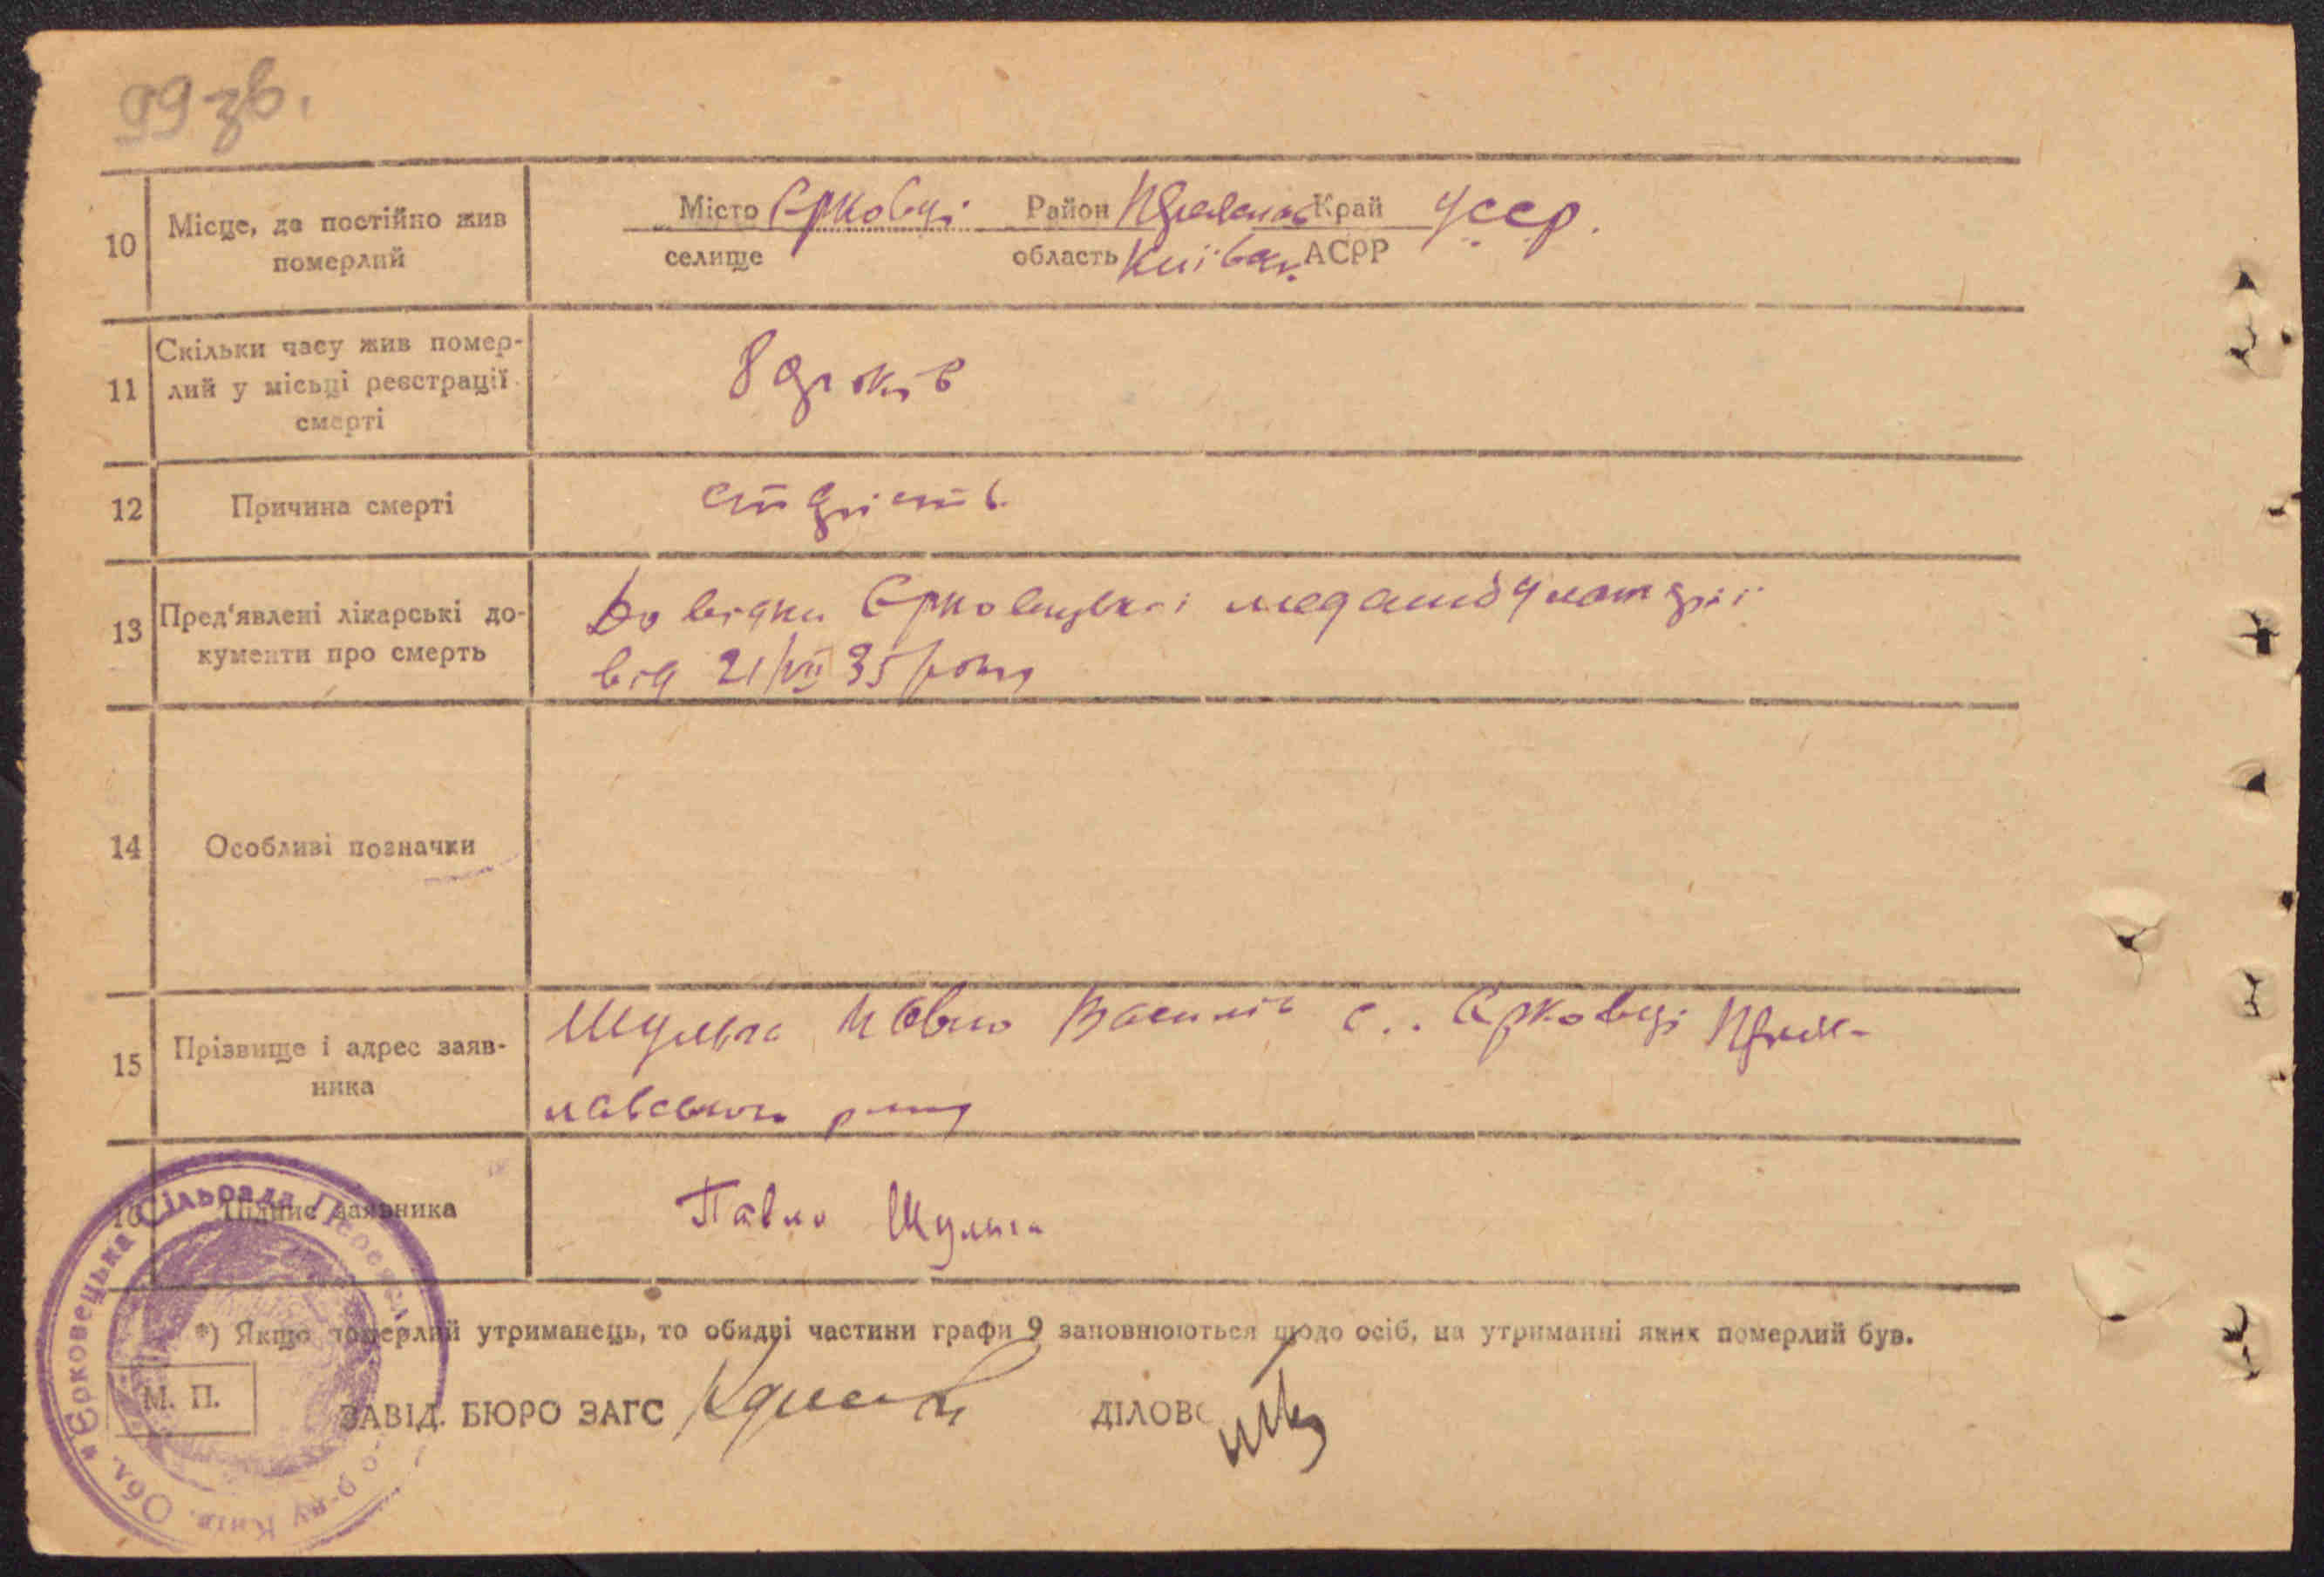 99 зв.
10 Місце, де постійно жив померлий
Місто Єрковці Район Край УССР.
селище область Київськ. АСРР
11 Скільки часу жив помер-
лий у місці реєстрації
смерті
8 років
12 Причина смерті
старість
13 Пред'явлені лікарські до-
кументи про смерть
Довідка Єрковецької медамбулаторії
від 21/VII 35 року
14 Особливі позначки
15 Прізвище і адрес заяв-
ника
Шульга Павло Василів с. Єрковці Переяс-
лавського району
16 Підпис заявника
Павло Шульга
*) Якщо померлий утриманець, то обидві частини графи 9 заповнюються щодо осіб, на утриманні яких померлий був.
М. П.
ЗАВІД. БЮРО ЗАГС ДІЛОВ
Єрковецька Сільрада
о р-ну Київ. Обл.